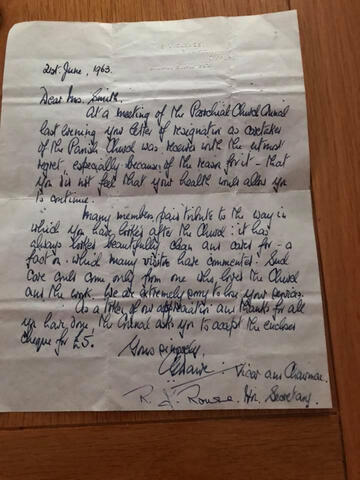 21st June, 1963.
Dear Mrs. Smith.
At a meeting of the Parochial Church Council
last evening your letter of resignation as caretaker
of the Parish Church was received with the utmost
regret, especially because of the reason for it - that
you did not feel that your health would allow you
to continue.
Many members paid tribute to the way in
which you have looked after the Church: it has
always looked beautifully clean and cared for - a
fact on which many visitors have commented. Such
care could come only from one who loves the Church
and the work. We are extremely sorry to lose your services.
As a token of our appreciation and thanks for all
you have done, the Council ask you to accept the enclosed
cheque for £5.
Yours sincerely,
Vicar and Chairman.
R. J. Rowse. Hn. Secretary.